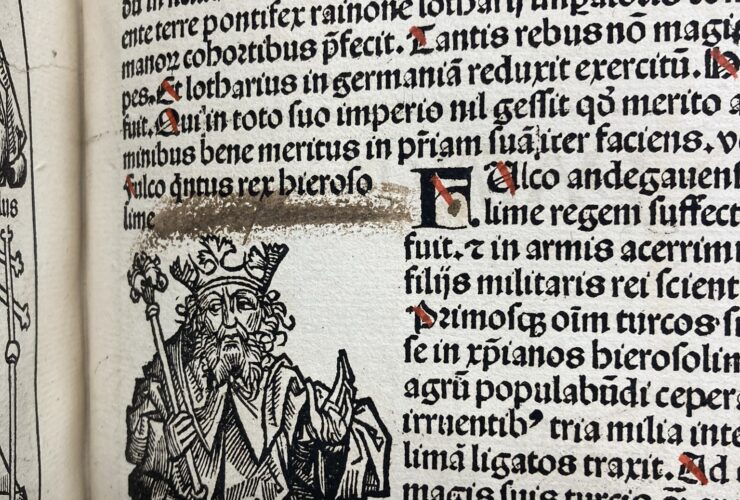 ente terre pontifex rainone lotharij
manoꝝ cohortibus p̄fecit. Tantis rebus nō magis
pes. Et lotharius in germaniā reduxit exercitū.
fuit. Qui in toto suo imperio nil gessit qđ merito a
minibus bene meritus in pr̄iam suā iter faciens. v
Fulco q̄ntus rex hieroso
lime
FUlco andegauens
lime regem suffect
fuit. ⁊ in armis acerrim
filijs militaris rei scient
Primosqꝫ oīm turcos s
se in xp̄ianos hierosolim
agrū populabūdi ceper
irruentibꝰ tria milia inte
limā ligatos traxit. Ad
magis suis turcis
lus